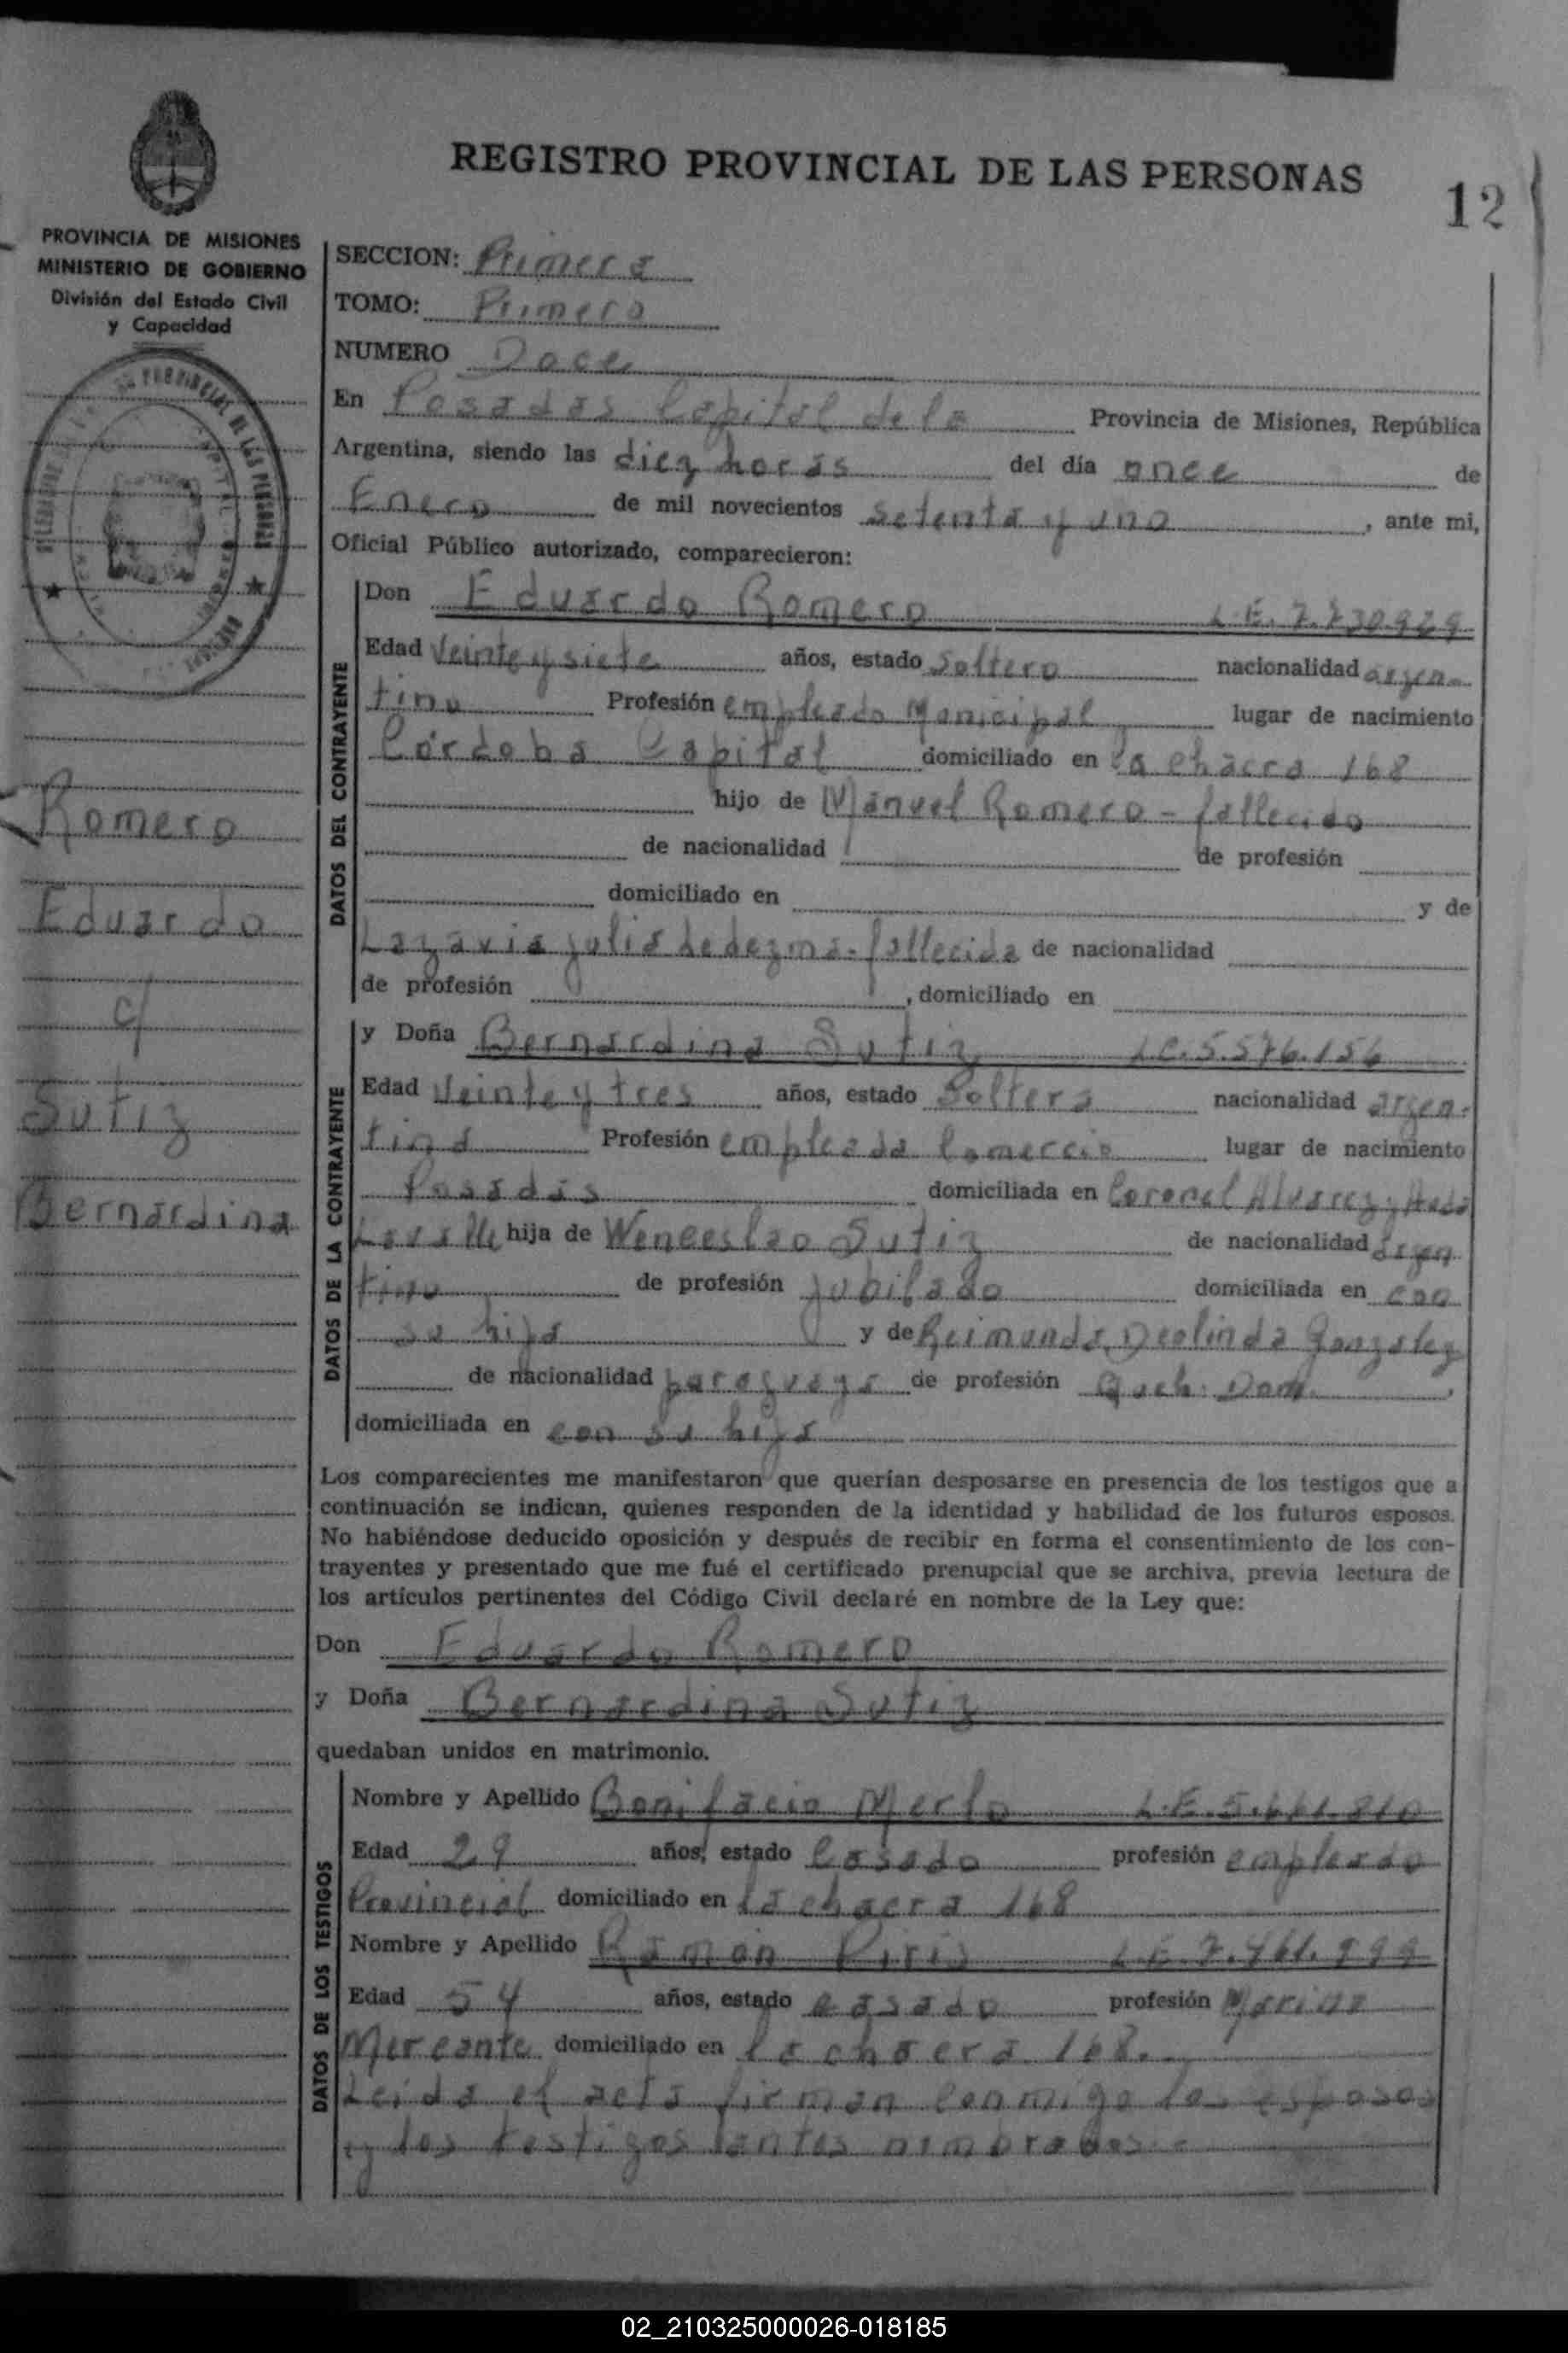 REGISTRO PROVINCIAL DE LAS PERSONAS
12
PROVINCIA DE MISIONES
MINISTERIO DE GOBIERNO
División del Estado Civil
y Capacidad
Romero
Eduardo
c/
Sutiz
Bernardina
SECCION: Primera
TOMO: Primero
NUMERO Doce
En Posadas Capital de la Provincia de Misiones, República
Argentina, siendo las diez horas del día once de
Enero de mil novecientos setenta y uno, ante mi,
Oficial Público autorizado, comparecieron:
DATOS DEL CONTRAYENTE
Don Eduardo Romero L.E.
Edad Veinte y siete años, estado Soltero nacionalidad argen-
tino Profesión empleado Municipal lugar de nacimiento
Córdoba Capital domiciliado en la chacra 168
hijo de Manuel Romero - fallecido
de nacionalidad de profesión
domiciliado en y de
Julia Ledezma - fallecida de nacionalidad
de profesión , domiciliado en
DATOS DE LA CONTRAYENTE
y Doña Bernardina Sutiz L.C. 5.576.156
Edad Veinte y tres años, estado Soltera nacionalidad argen-
tina Profesión empleada Comercio lugar de nacimiento
Posadas domiciliada en Coronel Alvarez y
Lavalle hija de Wenceslao Sutiz de nacionalidad argen
tino de profesión Jubilado domiciliada en con
su hija y de Reimunda Deolinda Gonzalez
de nacionalidad paraguaya de profesión Queh. Dom. ,
domiciliada en con su hija
Los comparecientes me manifestaron que querían desposarse en presencia de los testigos que a
continuación se indican, quienes responden de la identidad y habilidad de los futuros esposos.
No habiéndose deducido oposición y después de recibir en forma el consentimiento de los con-
trayentes y presentado que me fué el certificado prenupcial que se archiva, previa lectura de
los artículos pertinentes del Código Civil declaré en nombre de la Ley que:
Don Eduardo Romero
y Doña Bernardina Sutiz
quedaban unidos en matrimonio.
DATOS DE LOS TESTIGOS
Nombre y Apellido Bonifacio Merlo L.E.
Edad 29 años, estado Casado profesión empleado
Provincial domiciliado en la chacra 168
Nombre y Apellido Ramon Piriz L.E.
Edad 54 años, estado casado profesión Marino
Mercante domiciliado en la chacra 168.
Leida el acta firman conmigo los esposos
y los testigos antes nombrados.-
02_210325000026-018185